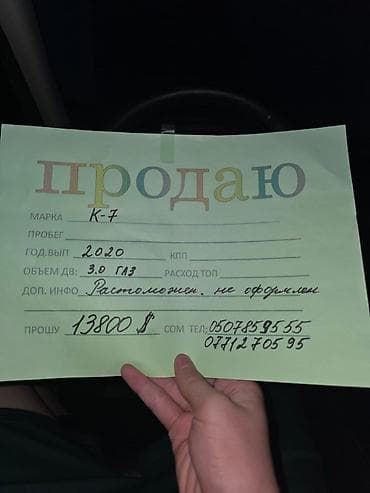 продаю
МАРКА К-7
ПРОБЕГ
ГОД.ВЫП 2020 КПП
ОБЪЕМ ДВ: 3.0 ГАЗ РАСХОД ТОП
ДОП. ИНФО Растоможен. не оформлен
ПРОШУ 13800 $ СОМ ТЕЛ: 0507859555
0771270595